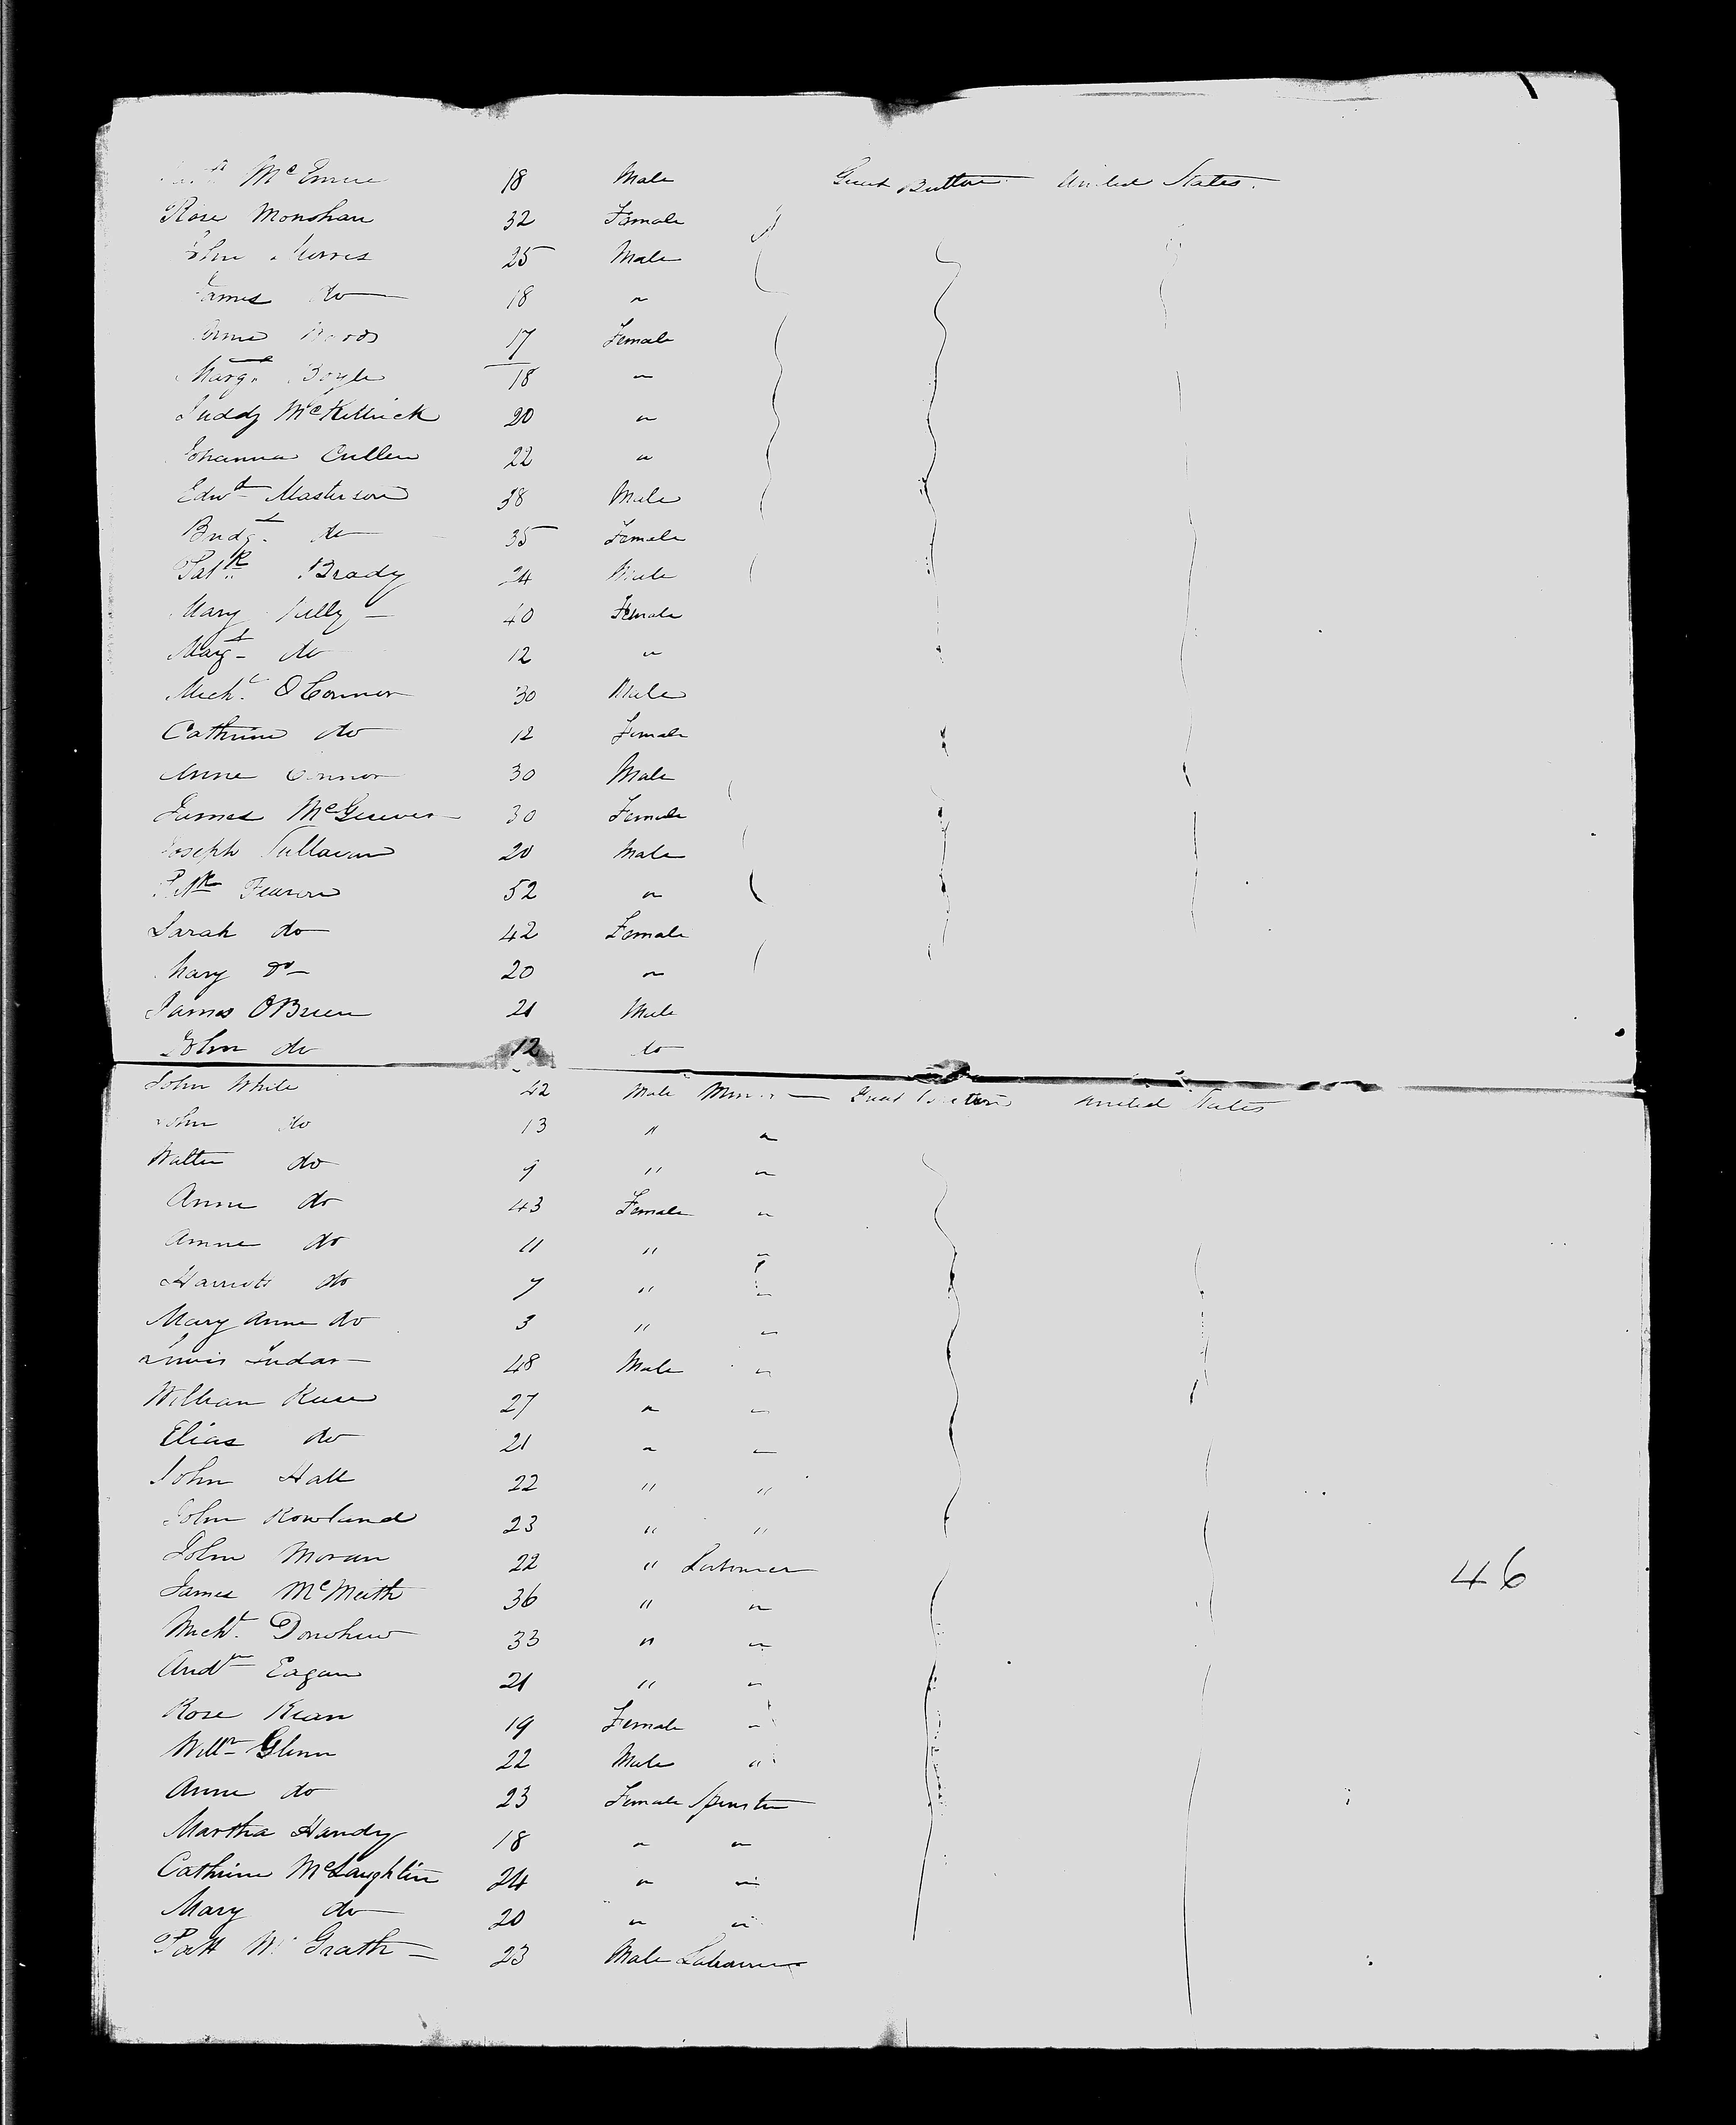 McEnroe 18 Male Great Britain United States.
Rose Monohan 32 Female
John Morris 25 Male
James do 18 "
Anne Woods 17 Female
Margt Boyle 18 "
Juddy McKittrick 20 "
Johanna Cullen 22 "
Edwd Masterson 38 Male
Bridgt do 35 Female
Patk Brady 24 Male
Mary 40 Female
Margt do 12 "
Michl O'Connor 30 Male
Cathrine do 12 Female
Anne Connor 30 Male
James 30 Female
Joseph 20 Male
Patk Fearon 52 "
Sarah do 42 Female
Mary Do 20 "
James OBrien 21 Male
John do 12 do
John White 42 Male Miner Great Britain United States
John do 13 " "
Walter do 9 " "
Anne do 43 Female "
Anne do 11 " "
Harriott do 7 " "
Mary Anne do 3 " "
48 Male "
William 27 " "
Elias do 21 " "
John Hall 22 " "
John Rowland 23 " "
John Moran 22 " Labourer
46
James McMeith 36 " "
Michl Donohue 33 " "
Andw Eagan 21 " "
Rose Kean 19 Female "
Willm Glenn 22 Male "
Anne do 23 Female Spinster
Martha Handy 18 " "
Cathrine McLaughlin 24 " "
Mary do 20 " "
Patt McGrath 23 Male Labourer